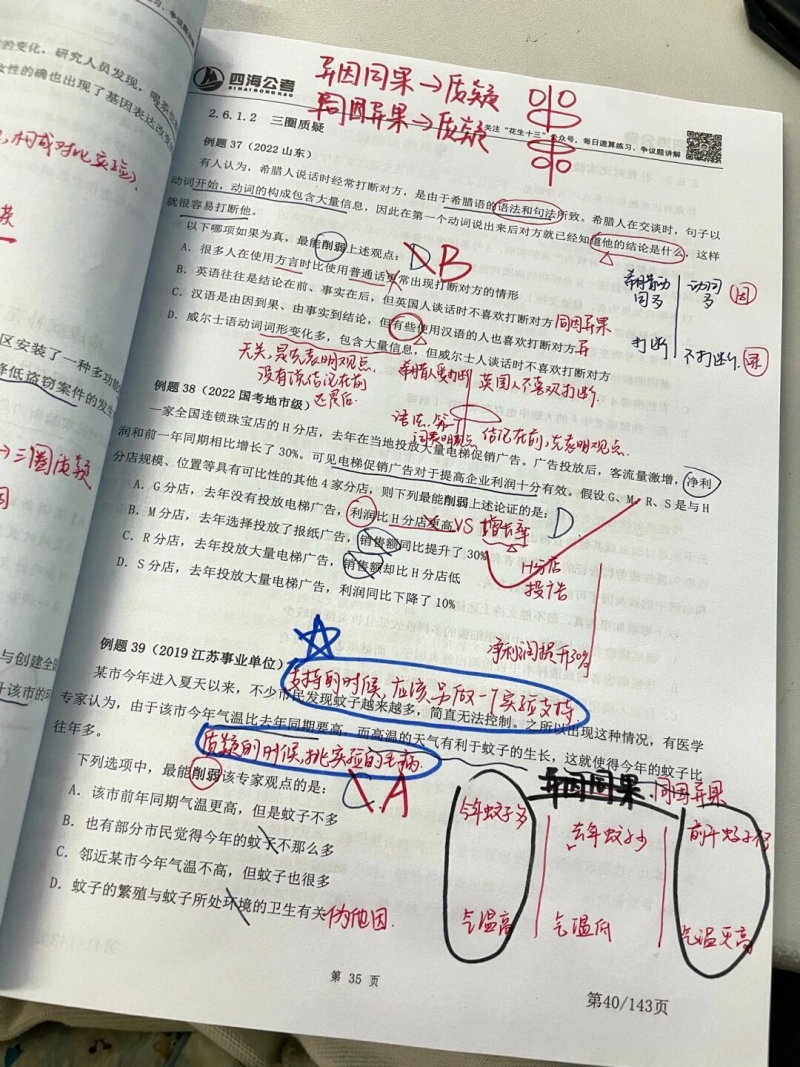 的变化。研究人员发现，喝茶
女性的确也出现了基因表达改
构成对比实验
区安装了一种多功
降低盗窃案件的发生
→三圈质疑
与创建全
四海公考
SIHAIGONGKAO
异因同果→质疑
同因异果→质疑
关注“花生十三”公众号，每日速算练习、争议题讲解
2.6.1.2 三圈质疑
例题 37（2022 山东）
有人认为，希腊人说话时经常打断对方，是由于希腊语的语法和句法所致。希腊人在交谈时，句子以
动词开始，动词的构成包含大量信息，因此在第一个动词说出来后对方就已经知道他的结论是什么，这样
就很容易打断他。
以下哪项如果为真，最能削弱上述观点：
D B
A. 很多人在使用方言时比使用普通话更常出现打断对方的情形
B. 英语往往是结论在前、事实在后，但英国人谈话时不喜欢打断对方 同因异果
C. 汉语是由因到果、由事实到结论，但有些使用汉语的人也喜欢打断对方 异
D. 威尔士语动词词形变化多，包含大量信息，但威尔士人谈话时不喜欢打断对方
动词
多
因
打断
不打断
果
无关，是先表明观点，
没有说结论在前
英国人不喜欢打断
结论在前，先表明观点
例题 38（2022 国考地市级）
一家全国连锁珠宝店的 H 分店，去年在当地投放大量电梯促销广告。广告投放后，客流量激增，净利
润和前一年同期相比增长了 30%。可见电梯促销广告对于提高企业利润十分有效。假设 G、M、R、S 是与 H
分店规模、位置等具有可比性的其他 4 家分店，则下列最能削弱上述论证的是：
D
A. G 分店，去年没有投放电梯广告，利润比 H 分店更高 VS 增长率
B. M 分店，去年选择投放了报纸广告，销售额同比提升了 30%
C. R 分店，去年投放大量电梯广告，销售额却比 H 分店低
D. S 分店，去年投放大量电梯广告，利润同比下降了 10%
H分店
投广告
净利润提升30%
例题 39（2019 江苏事业单位）
支持的时候，应该另做一个实验支持
某市今年进入夏天以来，不少市民发现蚊子越来越多，简直无法控制。之所以出现这种情况，有医学
专家认为，由于该市今年气温比去年同期要高，而高温的天气有利于蚊子的生长，这就使得今年的蚊子比
往年多。
质疑的时候，挑实验的毛病
下列选项中，最能削弱该专家观点的是：
C A
A. 该市前年同期气温更高，但是蚊子不多
B. 也有部分市民觉得今年的蚊子不那么多
C. 邻近某市今年气温不高，但蚊子也很多
D. 蚊子的繁殖与蚊子所处环境的卫生有关 伪他因
异因同果 同因异果
今年蚊子多
去年蚊子少
前年蚊子不
气温高
气温低
气温更高
第 35 页
第40/143页